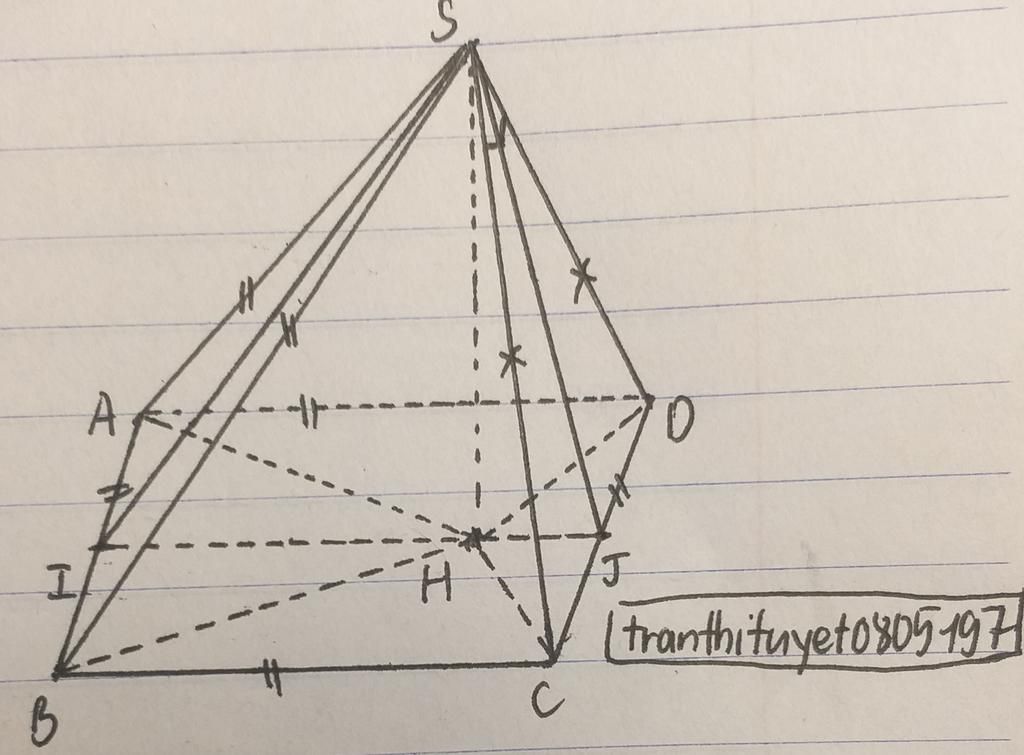 S
A
D
I
H
J
B
C
tranthituyet0805197